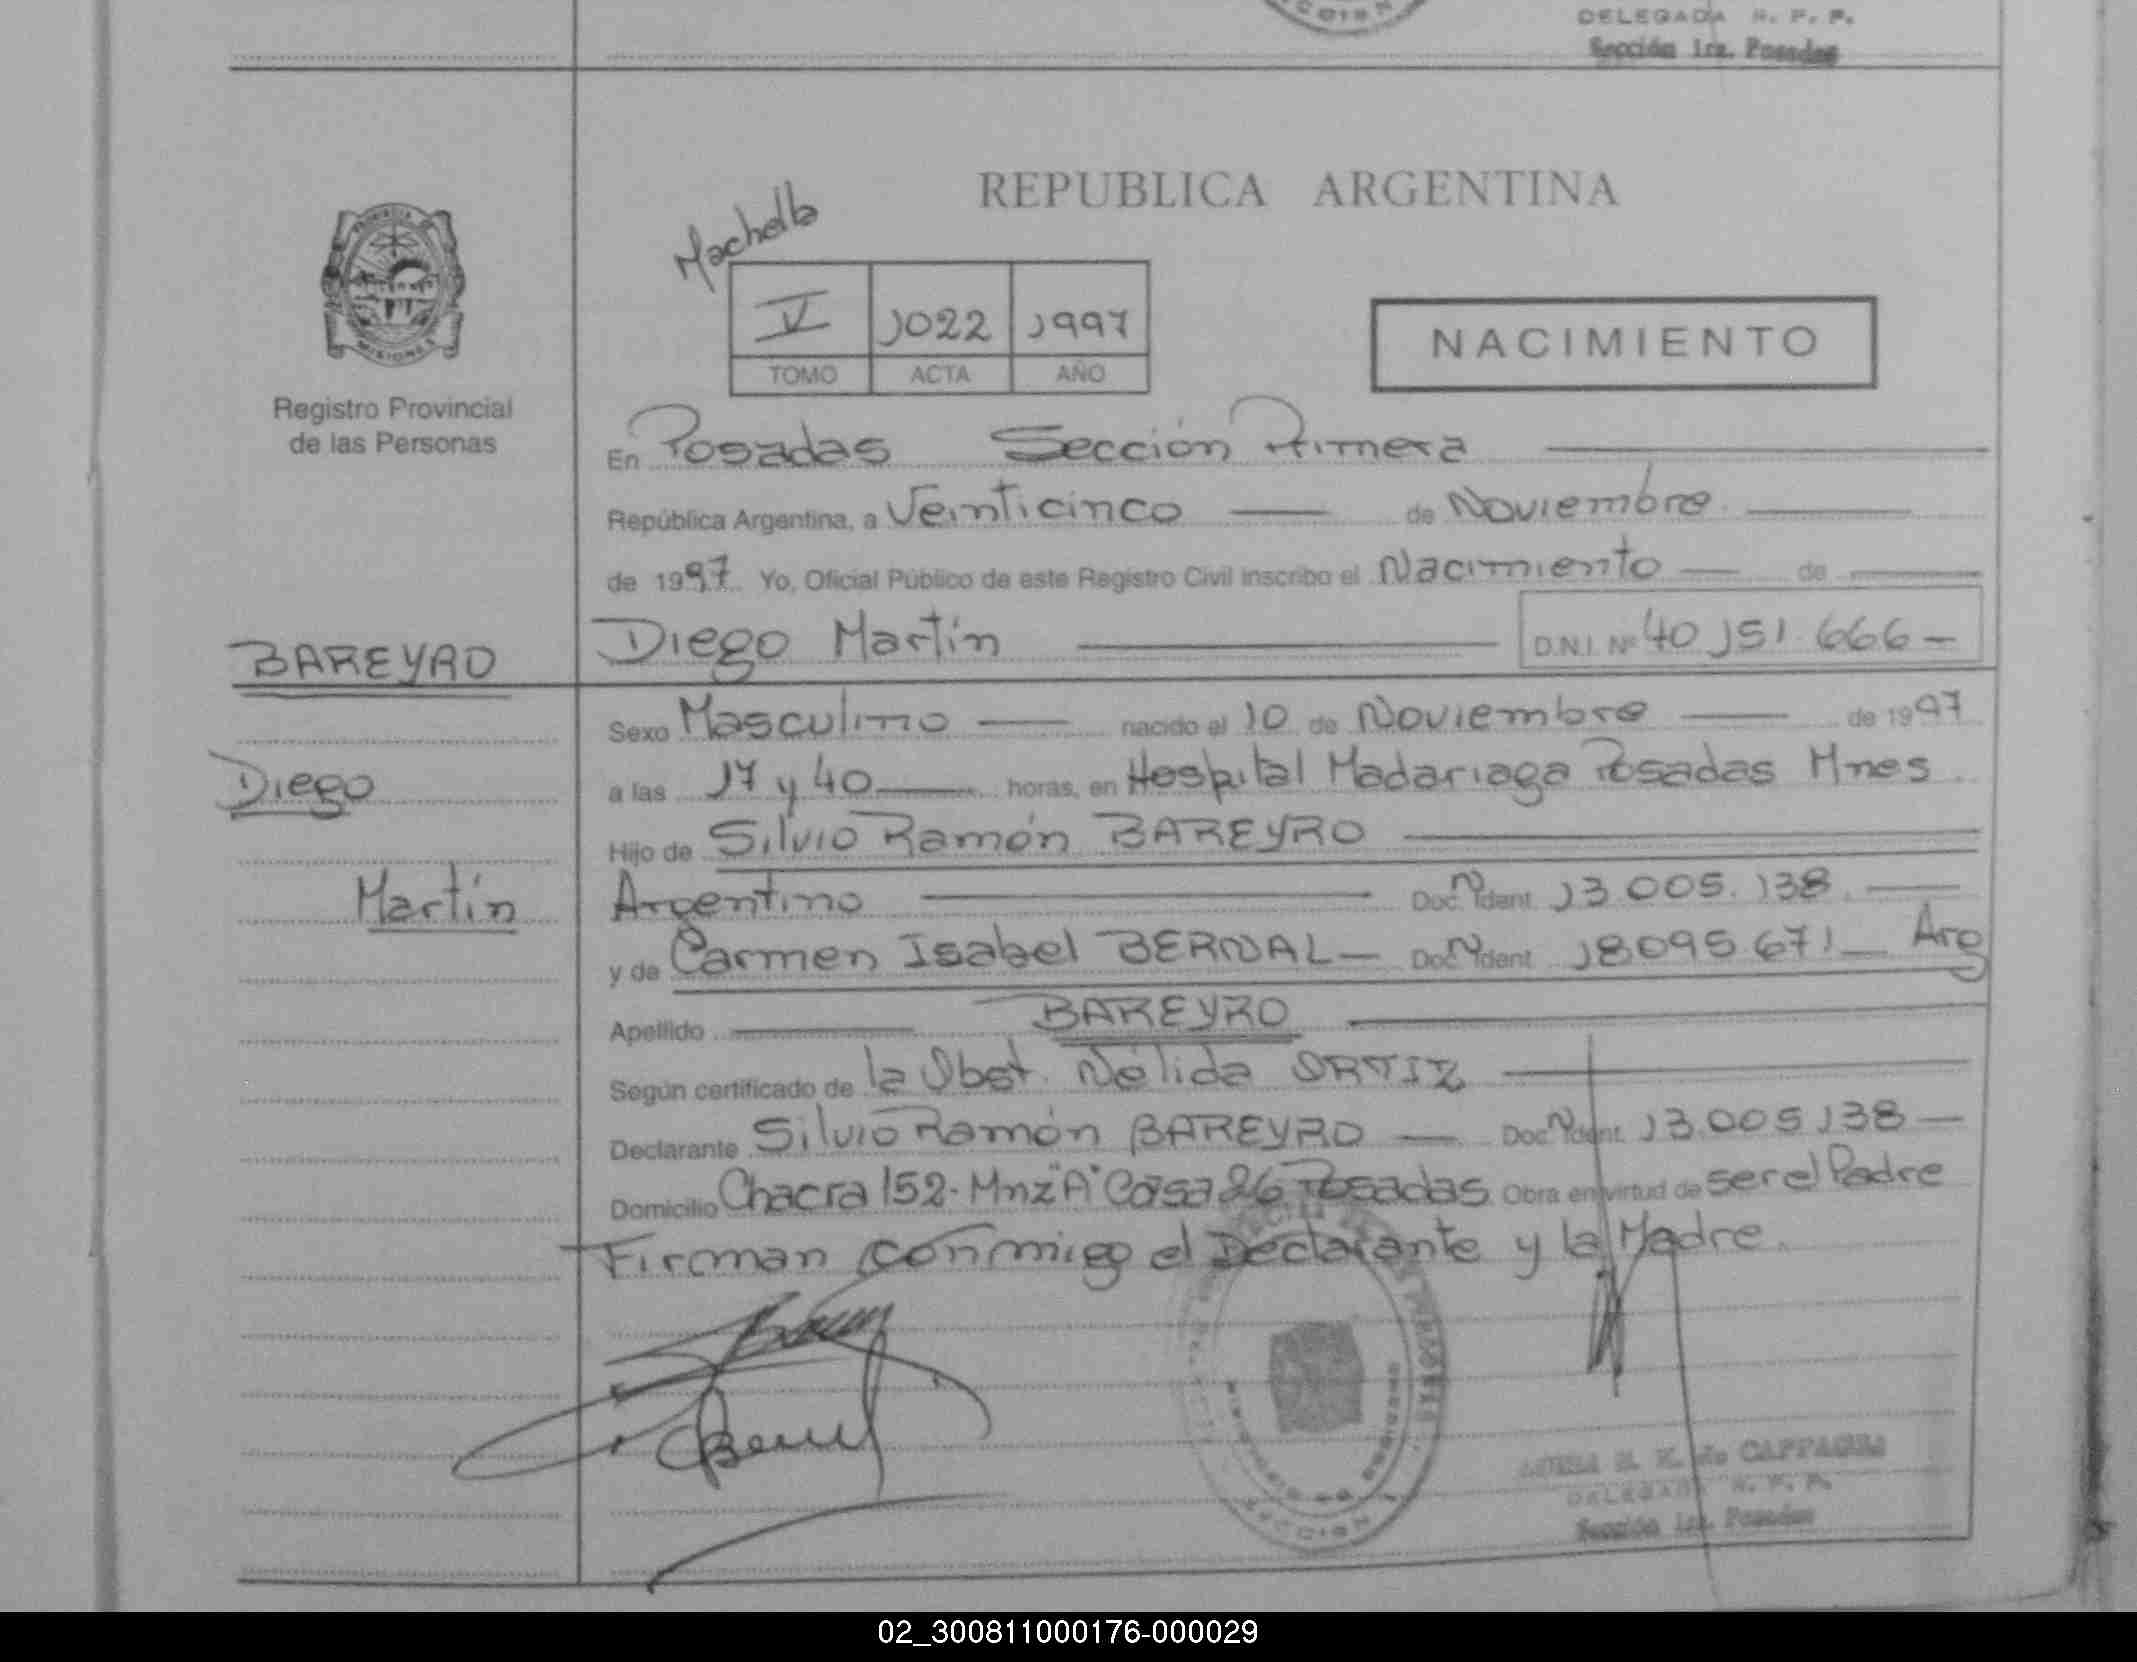 DELEGADA R. P. P.
Sección 1ra. Posadas
REPUBLICA ARGENTINA
V 1022 1997
TOMO ACTA AÑO
NACIMIENTO
MISIONES
Registro Provincial
de las Personas
En Posadas Sección Primera
República Argentina, a Veinticinco de Noviembre
de 1997 Yo, Oficial Público de este Registro Civil inscribo el Nacimiento de
BAREYRO
Diego Martín D.N.I. Nº 40 151.666
Sexo Masculino nacido el 10 de Noviembre de 1997
Diego
a las 17 y 40 horas, en Hospital Madariaga Posadas Mnes
Hijo de Silvio Ramón BAREYRO
Martín
Argentino Doc. N Ident. 13.005.138
y de Carmen Isabel BERNAL Doc. N Ident. 18095.671 Arg
Apellido BAREYRO
Según certificado de la Obst. Nélida ORTIZ
Declarante Silvio Ramón BAREYRO Doc. N Ident. 13.005.138
Domicilio Chacra 152. Mnz "A" Casa 26 Posadas Obra en virtud de ser el Padre
Firman conmigo el Declarante y la Madre.
DELEGADA R. P. P.
Sección 1ra. Posadas
02_300811000176-000029